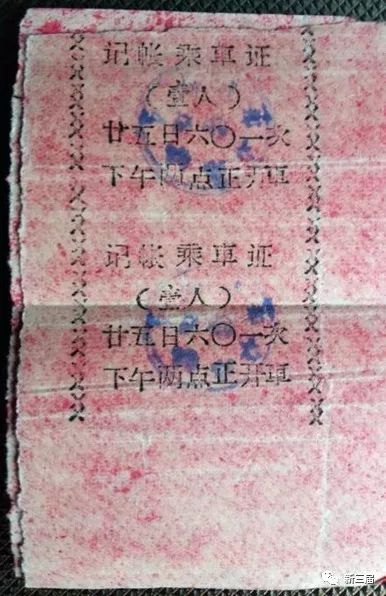 记帐乘車证
(壹人)
廿五日六〇一次
下午两点正开車
记帐乘車证
(壹人)
廿五日六〇一次
下午两点正开車
新三届